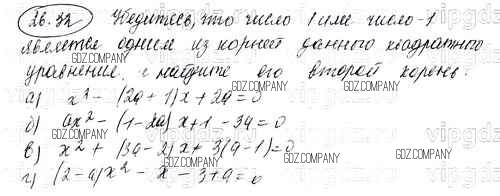 26.32 Убедитесь, что число 1 или число -1
является одним из корней данного квадратного
уравнения, и найдите его второй корень:
а) x² - (2a + 1)x + 2a = 0
б) ax² - (1 - 2a)x + 1 - 3a = 0
в) x² + (3a - 2)x + 3(a - 1) = 0
г) (2 - a)x² - x - 3 + a = 0
GDZ.COMPANY
vipgdz